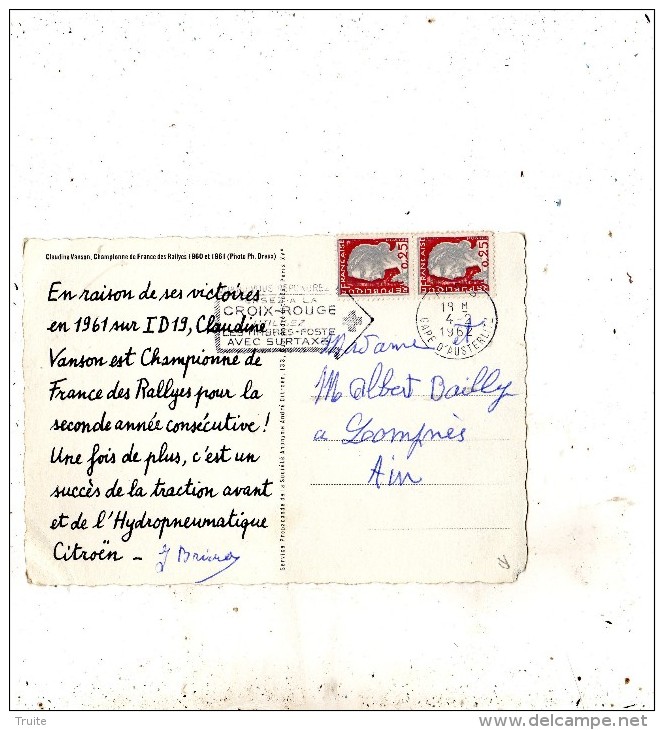 Claudine Vanson, Championne de France des Rallyes 1960 et 1961 (Photo Ph. Dreux)
En raison de ses victoires
en 1961 sur ID19, Claudine
Vanson est Championne de
France des Rallyes pour la
seconde année consécutive!
Une fois de plus, c'est un
succès de la traction avant
et de l'Hydropneumatique
Citroën -
Service Propagande de la Société Anonyme André Citroën, 133,
RÉPUBLIQUE FRANÇAISE 0,25
RÉPUBLIQUE FRANÇAISE 0,25
A LA
CROIX-ROUGE
LES TIMBRES-POSTE
AVEC SURTAXE
19 H
4-2
1962
GARE D'AUSTERLITZ
Madame et
M Albert Bailly
a Lompnès
Ain
Truite
delcampe.net